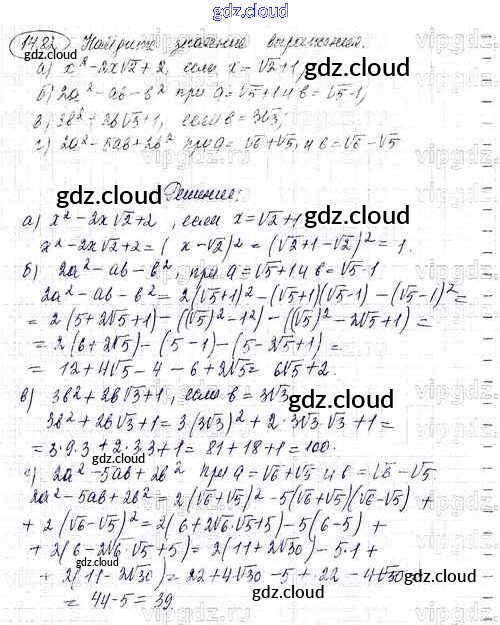 gdz.cloud
1482) Найдите значение выражения.
а) x² - 2x√2 + 2, если x = √2 + 1,
б) 2a² - ab - b² при a = √5 + 1 и b = √5 - 1,
в) 3b² + 2b√3 + 1, если b = 3√3;
г) 2a² - 5ab + 2b² при a = √6 + √5, и b = √6 - √5
Решение:
а) x² - 2x√2 + 2, если x = √2 + 1
x² - 2x√2 + 2 = (x - √2)² = (√2 + 1 - √2)² = 1.
б) 2a² - ab - b², при a = √5 + 1 и b = √5 - 1
2a² - ab - b² = 2(√5 + 1)² - (√5 + 1)(√5 - 1) - (√5 - 1)² =
= 2(5 + 2√5 + 1) - ((√5)² - 1²) - ((√5)² - 2√5 + 1) =
= 2(6 + 2√5) - (5 - 1) - (5 - 2√5 + 1) =
= 12 + 4√5 - 4 - 6 + 2√5 = 6√5 + 2.
в) 3b² + 2b√3 + 1, если b = 3√3
3b² + 2b√3 + 1 = 3(3√3)² + 2 · 3√3 · √3 + 1 =
= 3 · 9 · 3 + 2 · 3 · 3 + 1 = 81 + 18 + 1 = 100.
г) 2a² - 5ab + 2b² при a = √6 + √5 и b = √6 - √5.
2a² - 5ab + 2b² = 2(√6 + √5)² - 5(√6 + √5)(√6 - √5) +
+ 2(√6 - √5)² = 2(6 + 2√6 · √5 + 5) - 5(6 - 5) +
+ 2(6 - 2√6 · √5 + 5) = 2(11 + 2√30) - 5 · 1 +
+ 2(11 - 2√30) = 22 + 4√30 - 5 + 22 - 4√30 =
= 44 - 5 = 39